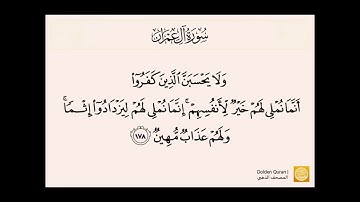 سُورَةُ آلِ عِمْرَانَ
وَلَا يَحْسَبَنَّ الَّذِينَ كَفَرُوا
أَنَّمَا نُمْلِي لَهُمْ خَيْرٌ لِأَنْفُسِهِمْ ۚ إِنَّمَا نُمْلِي لَهُمْ لِيَزْدَادُوا إِثْمًا ۚ
وَلَهُمْ عَذَابٌ مُهِينٌ ١٧٨
Golden Quran |
المصحف الذهبي